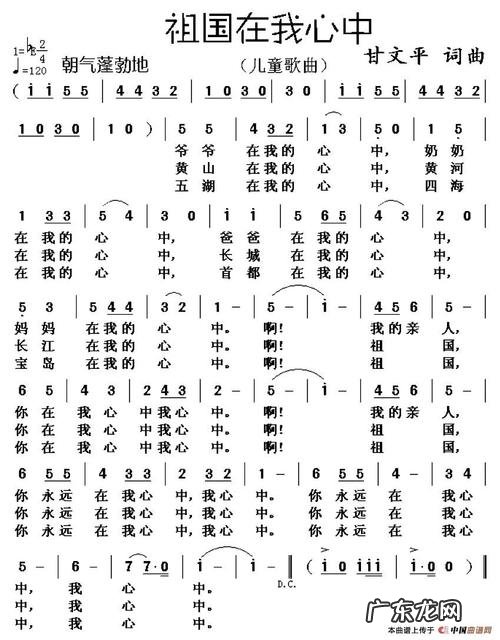 祖国在我心中
1=♭E 2/4
♩=120 朝气蓬勃地 （儿童歌曲） 甘文平 词曲
( i i 5 5 | 4 4 3 2 | i i 5 5 | 4 4 3 2 | 1 0 3 0 | i i 5 5 | 4 4 3 2 |
1 0 3 0 | 1 0 ) | 5 5 | 4 3 2 | 1 3 | 5 - | 1 5 |
爷爷 在我的 心 中，奶奶
黄山 在我的 心 中，黄河
五湖 在我的 心 中，四海
1 3 3 | 5 4 | 3 0 | i i | 5 6 5 | 4 3 | 2 - |
在我的 心 中， 爸爸 在我的 心 中，
在我的 心 中， 长城 在我的 心 中，
在我的 心 中， 首都 在我的 心 中，
5 3 | 5 4 4 | 3 2 | 1 - | i - | 5 - | 4 5 6 | 5 - |
妈妈 在我的 心 中。 啊！ 我的亲 人，
长江 在我的 心 中。 啊！ 祖 国，
宝岛 在我的 心 中。 啊！ 祖 国，
6 5 | 4 3 | 2 4 3 | 1 - | i - | 5 - | 4 5 6 | 5 - |
你在 我心 中我心 中。 啊！ 我的亲 人，
你在 我心 中我心 中。 啊！ 祖 国，
你在 我心 中我心 中。 啊！ 祖 国，
6 5 5 | 4 3 2 | 5 4 3 2 | 1 - | 6 5 5 | 4 3 2 |
你永远 在我心 中，我心 中。 你永远 在我心
你永远 在我心 中，我心 中。 你永远 在我心
你永远 在我心 中，我心 中。 你永远 在我心
5 - | 6 - | 7 7 0 | i - | i - | i 0 i i i | i 0 i 0 |
D.C.
中， 我 心 中。
中， 我 心 中。
中， 我 心 中。
本曲谱上传于 中国曲谱网
广东龙网